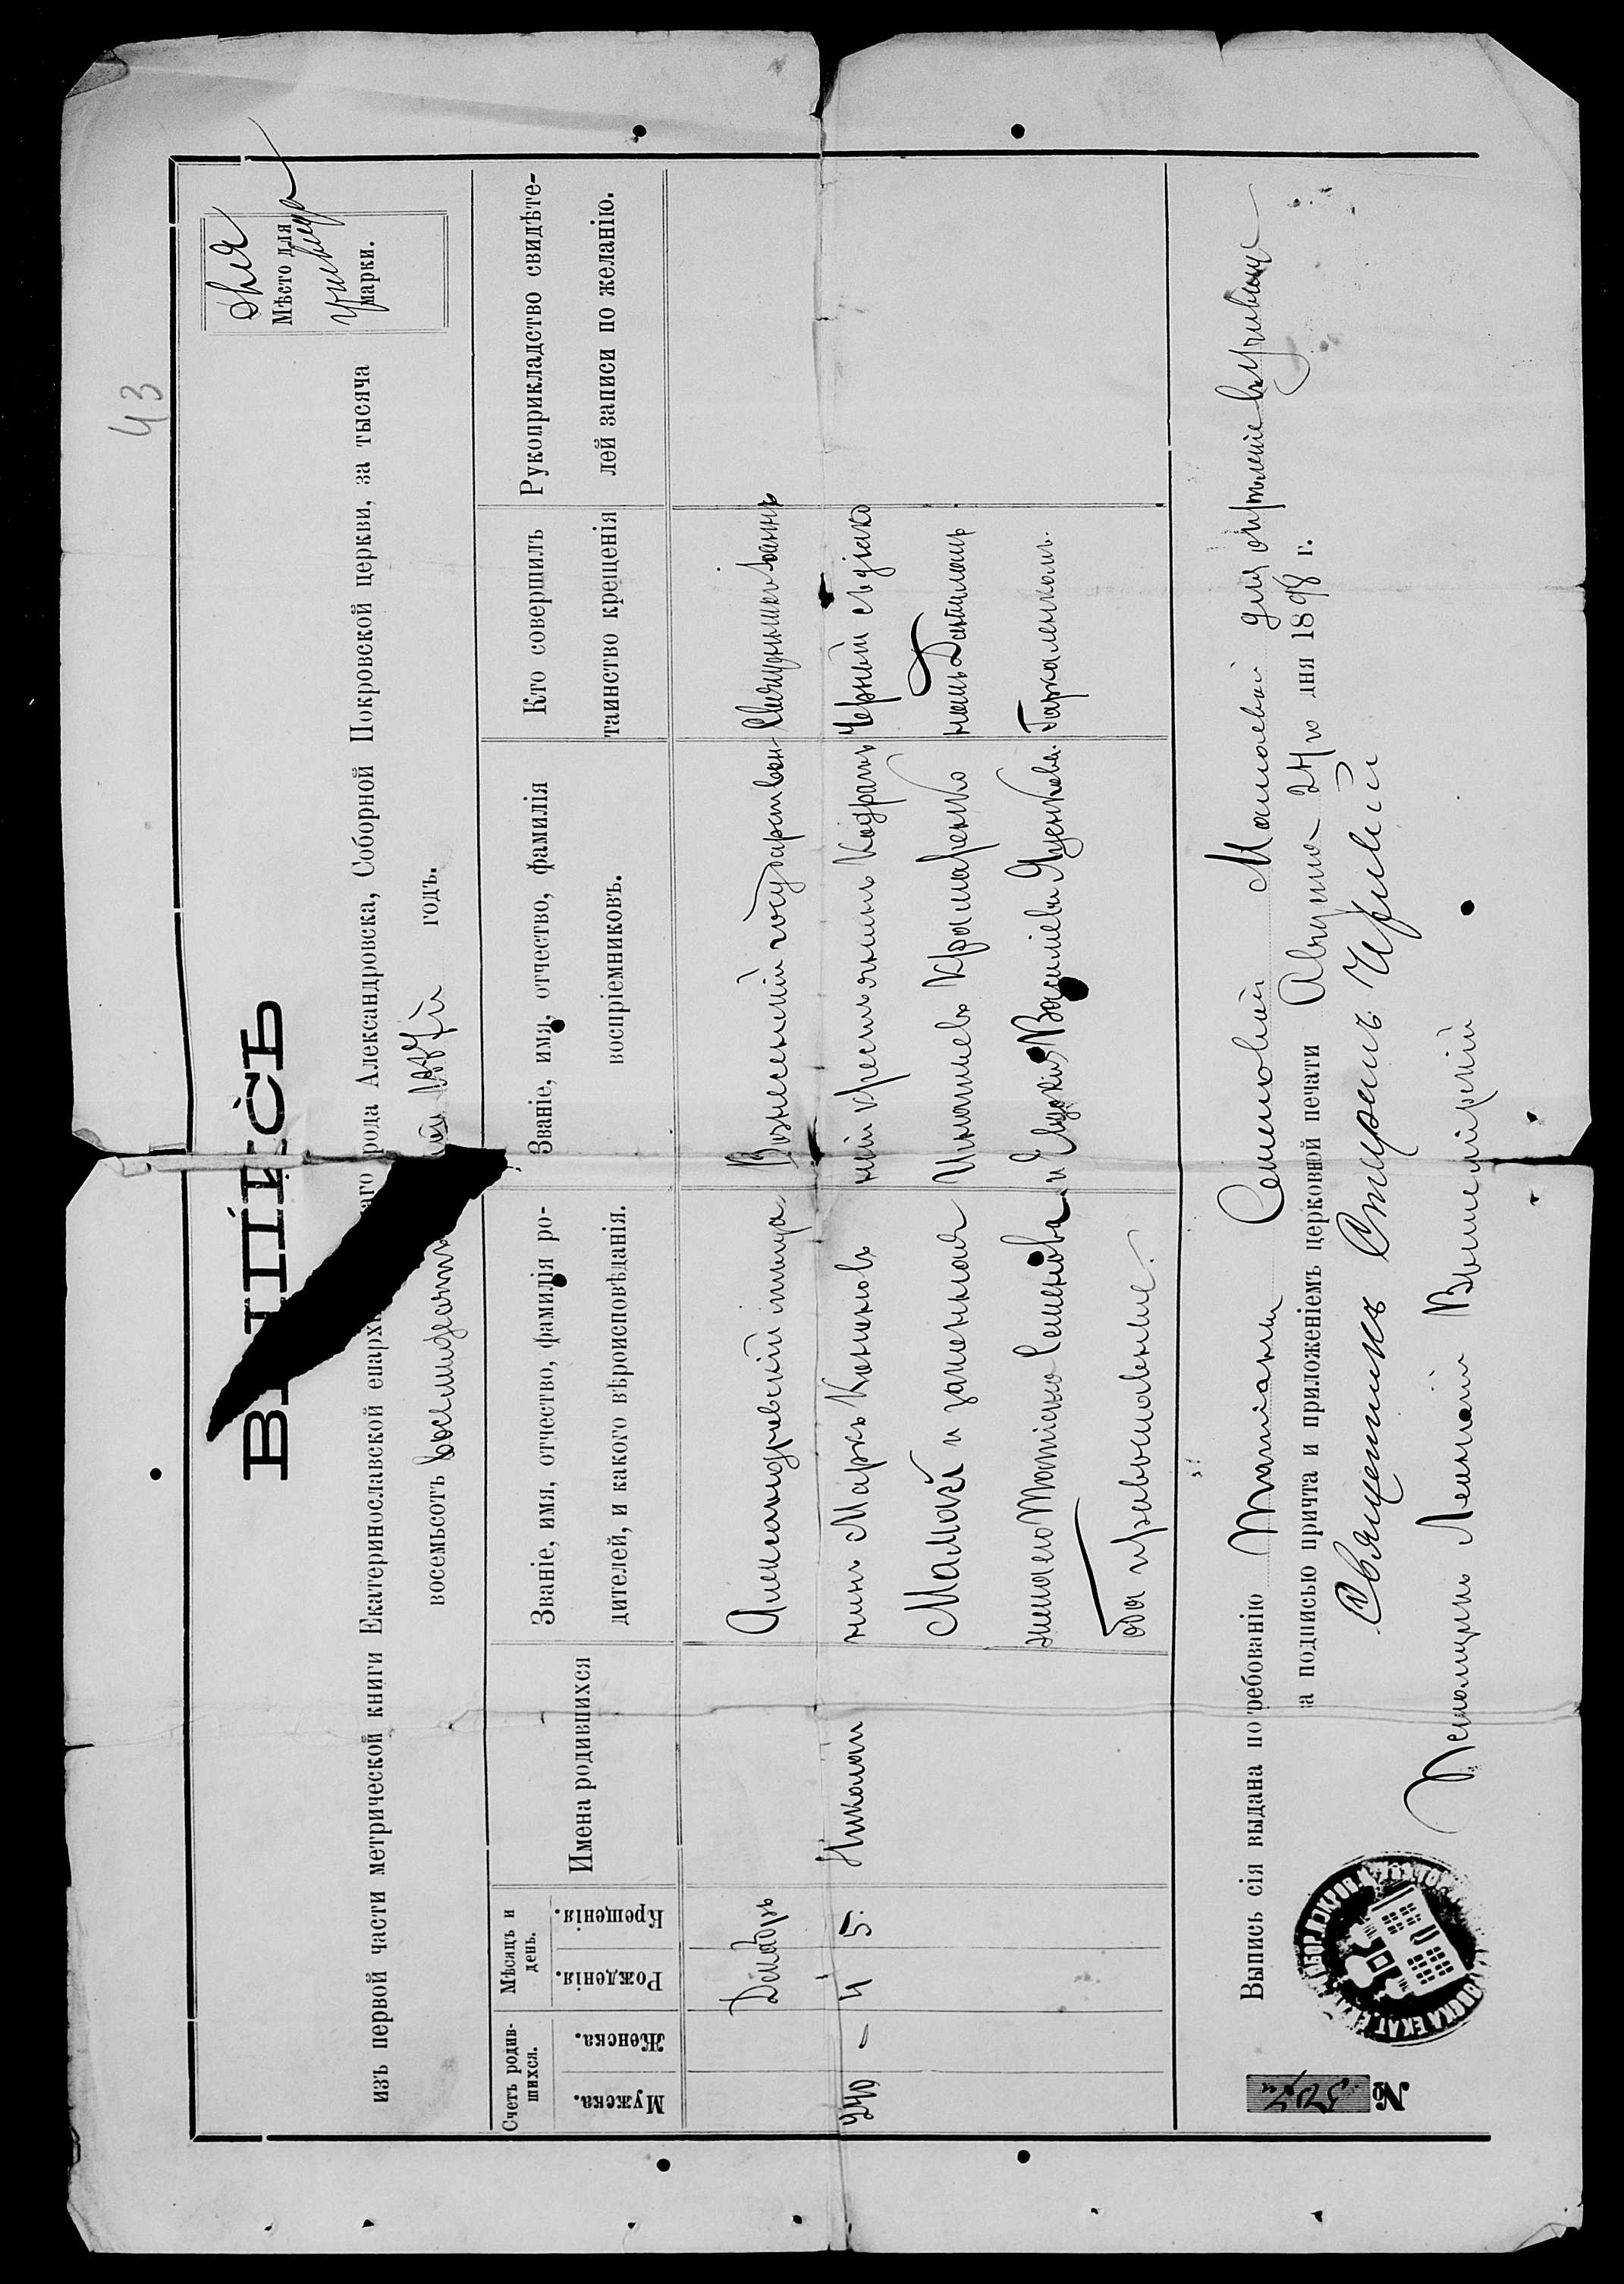 43
ВЫПИСЬ
Для
Мѣсто для
училища
марки.
изъ первой части метрической книги Екатеринославской епархі
аго
рода Александровска, Соборной Покровской церкви, за тысяча
восемьсотъ восемьдесят
мой 1887й годъ.
Счетъ родив-
шихся.
Мужеска.
Женска.
Мѣсяцъ и
день.
Рожденія.
Крещенія.
Имена родившихся
Званіе, имя, отчество, фамилія ро-
дителей, и какого вѣроисповѣданія.
Званіе, имя, отчество, фамилія
воспріемниковъ.
Кто совершилъ
таинство крещенія
Рукоприкладство свидѣте-
лей записи по желанію.
Декабрь
240 – 4 5.
Николай
Александровскій мѣща
нинъ Маркъ Кононовъ
Мамай и законная
жена его Татіана Семенова
оба православные.
Вознесенскій государствен-
ный крестьянинъ Кодратъ
Игнатіевъ Крамаренко
и Евдокія Васильева Яценкова.
Священникъ Іоаннъ
Черный съ діако
номъ Даніиломъ
Гаркаленкомъ.
Выпись сія выдана по требованію Татіаны Семеновой Мамаевой для опредѣленія въ училище
за подписью причта и приложеніемъ церковной печати Августа 24го дня 1898 г.
Священникъ Стуратъ Черный
Псаломщикъ Леонтій Вышемірскій
№